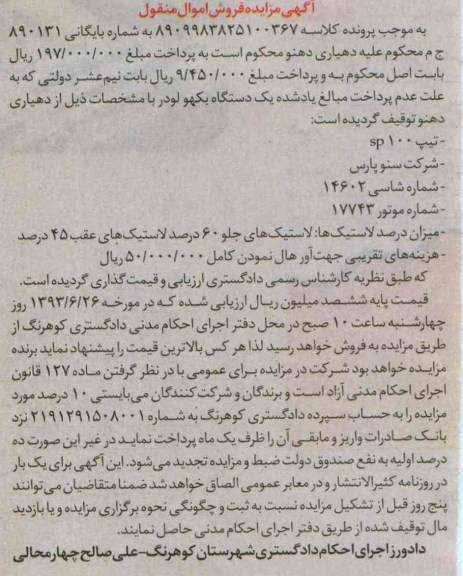 آگهی مزایده فروش اموال منقول
به موجب پرونده کلاسه ۸۹۰۹۹۸۳۸۲۵۱۰۰۳۶۷ به شماره بایگانی ۸۹۰۱۳۱
ج م محکوم علیه دهیاری دهنو محکوم است به پرداخت مبلغ ۱۹۷/۰۰۰/۰۰۰ ریال
بابت اصل محکوم به و پرداخت مبلغ ۹/۴۵۰/۰۰۰ ریال بابت نیم عشر دولتی که به
علت عدم پرداخت مبالغ یادشده یک دستگاه بکهو لودر با مشخصات ذیل از دهیاری
دهنو توقیف گردیده است:
- تیپ sp ۱۰۰
- شرکت سنو پارس
- شماره شاسی ۱۴۶۰۲
- شماره موتور ۱۷۷۴۳
- میزان درصد لاستیک‌ها: لاستیک‌های جلو ۶۰ درصد لاستیک‌های عقب ۴۵ درصد
- هزینه‌های تقریبی جهت آور هال نمودن کامل ۵۰/۰۰۰/۰۰۰ ریال
که طبق نظریه کارشناس رسمی دادگستری ارزیابی و قیمت گذاری گردیده است.
قیمت پایه ششصد میلیون ریال ارزیابی شده که در مورخه ۱۳۹۳/۶/۲۶ روز
چهارشنبه ساعت ۱۰ صبح در محل دفتر اجرای احکام مدنی دادگستری کوهرنگ از
طریق مزایده به فروش خواهد رسید لذا هر کس بالاترین قیمت را پیشنهاد نماید برنده
مزایده خواهد بود شرکت در مزایده برای عمومی با در نظر گرفتن ماده ۱۲۷ قانون
اجرای احکام مدنی آزاد است و برندگان و شرکت کنندگان می‌بایستی ۱۰ درصد مورد
مزایده را به حساب سپرده دادگستری کوهرنگ به شماره ۲۱۹۱۲۹۱۵۰۸۰۰۱ نزد
بانک صادرات واریز و مابقی آن را ظرف یک ماه پرداخت نماید در غیر این صورت ده
درصد اولیه به نفع صندوق دولت ضبط و مزایده تجدید می‌شود. این آگهی برای یک بار
در روزنامه کثیرالانتشار و در معابر عمومی الصاق خواهد شد ضمنا متقاضیان می‌توانند
پنج روز قبل از تشکیل مزایده نسبت به ثبت و چگونگی نحوه برگزاری مزایده و یا بازدید
مال توقیف شده از طریق دفتر اجرای احکام مدنی حاصل نمایند.
دادورز اجرای احکام دادگستری شهرستان کوهرنگ - علی صالح چهارمحالی